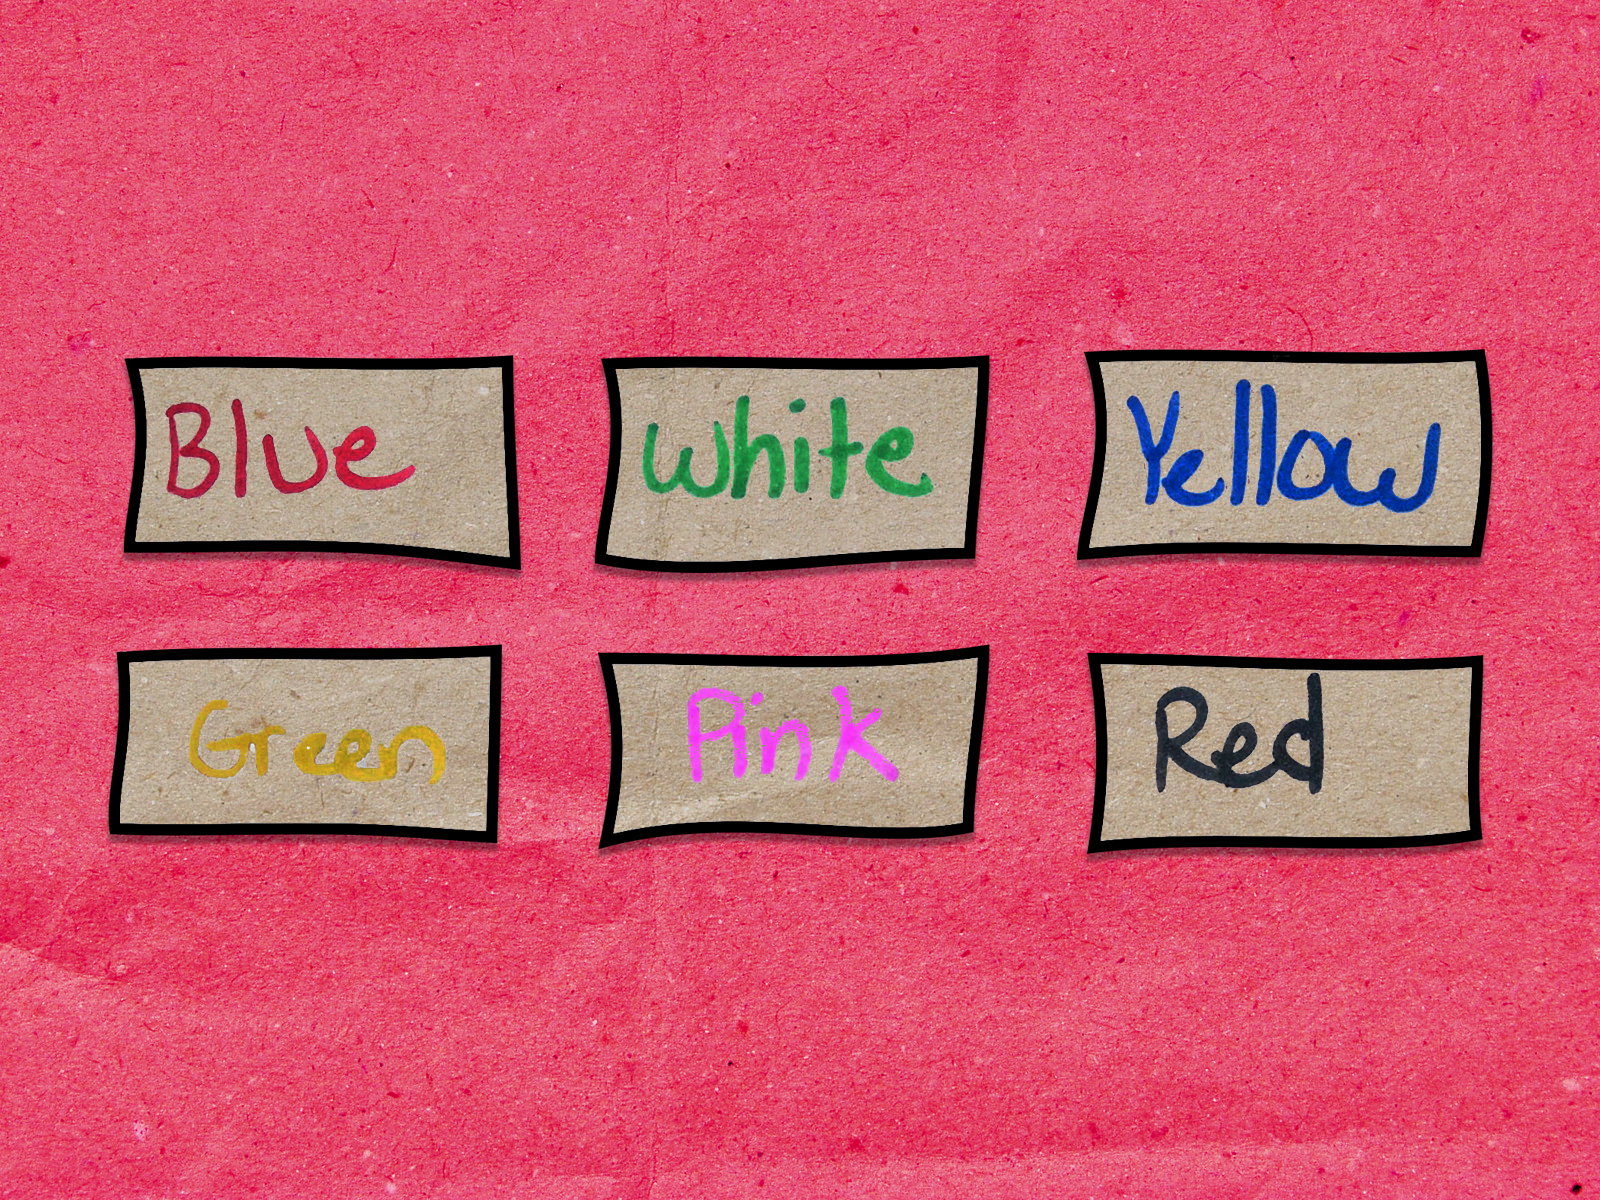 Blue
white
Yellow
Green
Pink
Red